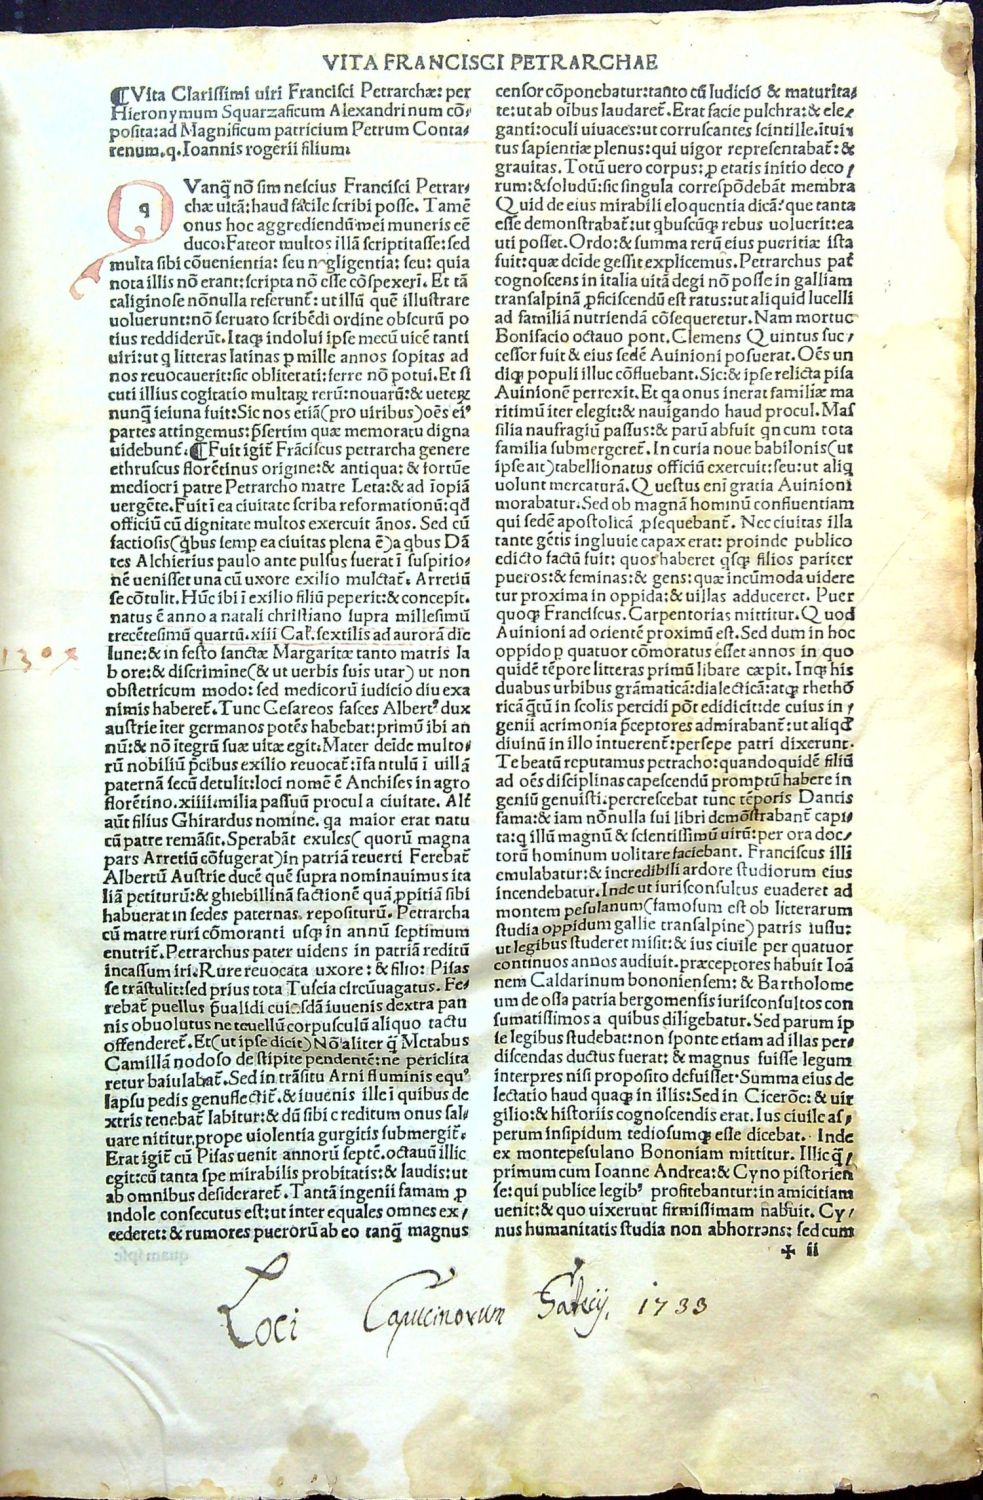 VITA FRANCISCI PETRARCHAE
¶Vita Clarissimi uiri Francisci Petrarchæ: per
Hieronymum Squarzaficum Alexandrinum cō-
posita: ad Magnificum patricium Petrum Conta-
renum.q. Ioannis rogerii filium.
q Vanq̄ nō sim nescius Francisci Petrar-
chæ uitā: haud facile scribi posse. Tamē
onus hoc aggrediendū: mei muneris eē
duco: Fateor multos illā scriptitasse: sed
multa sibi cōuenientia: seu negligentia: seu: quia
nota illis nō erant: scripta nō esse cōsperi. Et tā
caliginose nōnulla referunt̄: ut illū quē illustrare
uoluerunt: nō seruato scribēdi ordine obscurū po
tius reddiderūt. Itaq; indolui ipse mecū uicē tanti
uiri: ut q litteras latinas p mille annos sopitas ad
nos reuocauerit: sic obliterati: ferre nō potui. Et si
cuti illius cogitatio multaꝝ rerū: nouarū: & ueteꝝ
nunq̄ ieiuna fuit: Sic nos etiā (pro uiribus) oēs ei⁹
partes attingemus: p̄sertim quæ memoratu digna
uidebunt̄. ¶Fuit igit̄ Frāciscus petrarcha genere
ethruscus florētinus origine: & antiqua: & fortūe
mediocri patre Petrarcho matre Leta: & ad īopiā
uergēte. Fuit ī ea ciuitate scriba reformationū: qd̄
officiū cū dignitate multos exercuit ānos. Sed cū
factiosis (qbus semp ea ciuitas plena ē) a qbus Dā
tes Alchierius paulo ante pulsus fuerat ī suspitio-
nē uenisset una cū uxore exilio mulctat̄. Arretiū
se cōtulit. Hūc ibi ī exilio filiū peperit: & concepit.
natus ē anno a natali christiano supra millesimū
trecētesimū quartū. xiii Cal. sextilis ad aurorā die
lune: & in festo sanctæ Margaritæ tanto matris la
bore: & discrimine (& ut uerbis suis utar) ut non
obstetricum modo: sed medicorū iudicio diu exa
nimis haberet̄. Tunc Cesareos fasces Albert⁹ dux
austrie iter germanos potēs habebat: primū ibi an
nū: & nō ītegrū suæ uitæ egit. Mater deīde multo-
rū nobiliū p̄cibus exilio reuocat̄: īfantulū ī uillā
paternā secū detulit: loci nomē ē Anchises in agro
florētino. xiiii. milia passuū procul a ciuitate. Alt̄
aūt filius Ghirardus nomine. qa maior erat natu
cū patre remāsit. Sperabāt exules (quorū magna
pars Arretiū cōfugerat) in patriā reuerti Ferebat̄
Albertū Austrie ducē quē supra nominauimus ita
liā petiturū: & ghiebillinā factionē quā ppitiā sibi
habuerat in sedes paternas. repositurū. Petrarcha
cū matre ruri cōmoranti usq; in annū septimum
enutrit̄. Petrarchus pater uidens in patriā reditū
incassum iri. Rure reuocata uxore: & filio: Pisas
se trāstulit: sed prius tota Tuscia circūuagatus. Fe-
rebat̄ puellus p̄ualidi cuiusdā iuuenis dextra pan
nis obuolutus ne tenellū corpusculū aliquo tactu
offenderet̄. Et (ut ipse dicit) Nō aliter q̄ Metabus
Camillā nodoso de stipite pendentē: ne periclita
retur baiulabat̄. Sed in trāsitu Arni fluminis equ⁹
lapsu pedis genuflectit̄. & iuuenis ille ī quibus de
xtris tenebat̄ labitur: & dū sibi creditum onus sal-
uare nititur. prope uiolentia gurgitis submergit̄.
Erat igit̄ cū Pisas uenit annorū septē. octauū illic
egit: cū tanta spe mirabilis probitatis: & laudis: ut
ab omnibus desideraret̄. Tantā ingenii famam p
indole consecutus est: ut inter equales omnes ex-
cederet: & rumores puerorū ab eo tanq̄ magnus
censor cōponebatur: tanto cū Iudicio & maturita-
te: ut ab oībus laudaret̄. Erat facie pulchra: & ele-
ganti: oculi uiuaces: ut corruscantes scintille. ītui-
tus sapientiæ plenus: qui uigor representabat̄: &
grauitas. Totū uero corpus: p etatis initio deco-
rum: & solidū: sic singula correspōdebāt membra
Quid de eius mirabili eloquentia dicā? que tanta
esse demonstrabat̄: ut qbuscūq; rebus uoluerit: ea
uti posset. Ordo: & summa rerū eius pueritiæ ista
fuit: quæ deīde gessit explicemus. Petrarchus pat̄
cognoscens in italia uitā degi nō posse in galliam
transalpinā pficiscendū est ratus: ut aliquid lucelli
ad familiā nutriendā cōsequeretur. Nam mortuo
Bonifacio octauo pont. Clemens Quintus suc-
cessor fuit & eius sedē Auinioni posuerat. Oēs un
diq; populi illuc cōfluebant. Sic: & ipse relicta pisa
Auinionē perrexit. Et qa onus inerat familiæ ma
ritimū iter elegit: & nauigando haud procul. Mas
silia naufragiū passus: & parū abfuit qn cum tota
familia submergeret̄. In curia noue babilonis (ut
ipse ait) tabellionatus officiū exercuit: seu: ut aliq
uolunt mercaturā. Questus eni gratia Auinioni
morabatur. Sed ob magnā hominū confluentiam
qui sedē apostolicā psequebant̄. Nec ciuitas illa
tante gētis ingluuie capax erat: proinde publico
edicto factū fuit: quos haberet qsq; filios pariter
pueros: & feminas: & gens: quæ incūmoda uidere
tur proxima in oppida: & uillas adduceret. Puer
quoq; Franciscus. Carpentorias mittitur. Quod
Auinioni ad orientē proximū est. Sed dum in hoc
oppido p quatuor cōmoratus esset annos in quo
quidē tēpore litteras primū libare cæpit. Inq; his
duabus urbibus grāmaticā: dialecticā: atq; rhetho
ricā q̄tū in scolis percidi pōt edidicit: de cuius in-
genii acrimonia p̄ceptores admirabant̄: ut aliqd̄
diuinū in illo intuerent̄: persepe patri dixerunt.
Te beatū reputamus petracho: quando quidē filiū
ad oēs disciplinas capescendū promptū habere in
geniū genuisti. percrescebat tunc tēporis Dantis
fama: & iam nōnulla sui libri demōstrabant̄ capi-
ta: q illū magnū & scientissimū uirū: per ora doc-
torū hominum uolitare faciebant. Franciscus illi
emulabatur: & incredibili ardore studiorum eius
incendebatur. Inde ut iurisconsultus euaderet ad
montem pesulanum (famosum est ob litterarum
studia oppidum gallie transalpine) patris iussu:
ut legibus studeret misit: & ius ciuile per quatuor
continuos annos audiuit. præceptores habuit Ioā
nem Caldarinum bononiensem: & Bartholome
um de ossa patria bergomensis iurisconsultos con
sumatissimos a quibus diligebatur. Sed parum ip
se legibus studebat: non sponte etiam ad illas per-
discendas ductus fuerat: & magnus fuisse legum
interpres nisi proposito defuisset. Summa eius de
lectatio haud quaq; in illis: Sed in Cicerōe: & uir
gilio: & historiis cognoscendis erat. Ius ciuile as-
perum insipidum tediosumq; esse dicebat. Inde
ex montepesulano Bononiam mittitur. Illic q-
primum cum Ioanne Andrea: & Cyno pistorien
se: qui publice legib⁹ profitebantur: in amicitiam
uenit: & quo uixerunt firmissimam habuit. Cy-
nus humanitatis studia non abhorrens: sed cum
✠ ii
1304
Loci Capucinorum 1733